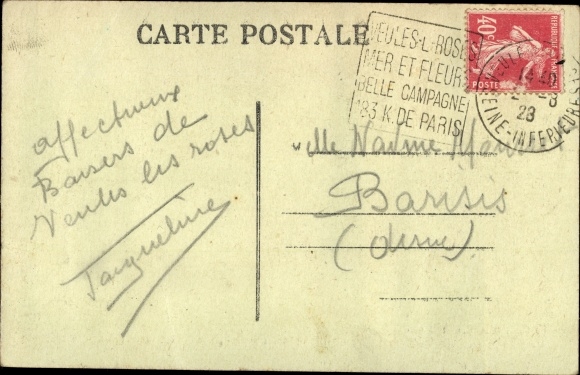 CARTE POSTALE
VEULES-L-ROSES
MER ET FLEURS
BELLE CAMPAGNE
183 K. DE PARIS
40c
REPUBLIQUE FRANCAISE
POSTES
VEULES
14-40
2 -8
28
SEINE-INFERIEURE
affectueux
Baisers de
Veules les roses
Jacqueline
Melle Nadine
Barisis
(Aisne)